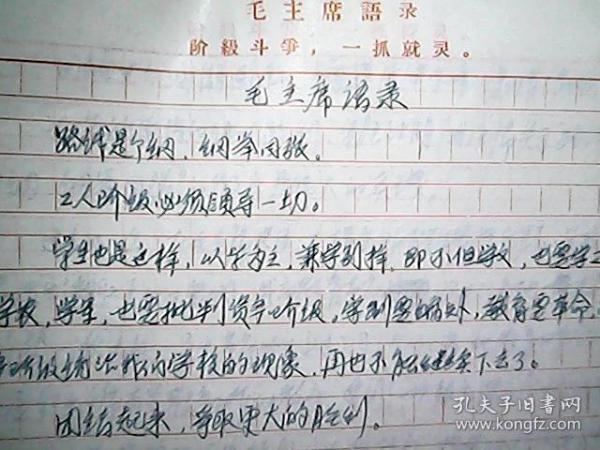 毛主席語录
阶級斗争，一抓就灵。
毛主席语录
路线是个纲，纲举目张。
工人阶级必须领导一切。
学生也是这样，以学为主，兼学别样，即不但学文，也要学工
学农，学军，也要批判资产阶级，学制要缩短，教育要革命，
阶级统治我们学校的现象，再也不能继续下去了。
团结起来，争取更大的胜利。
孔夫子旧书网
www.kongfz.com